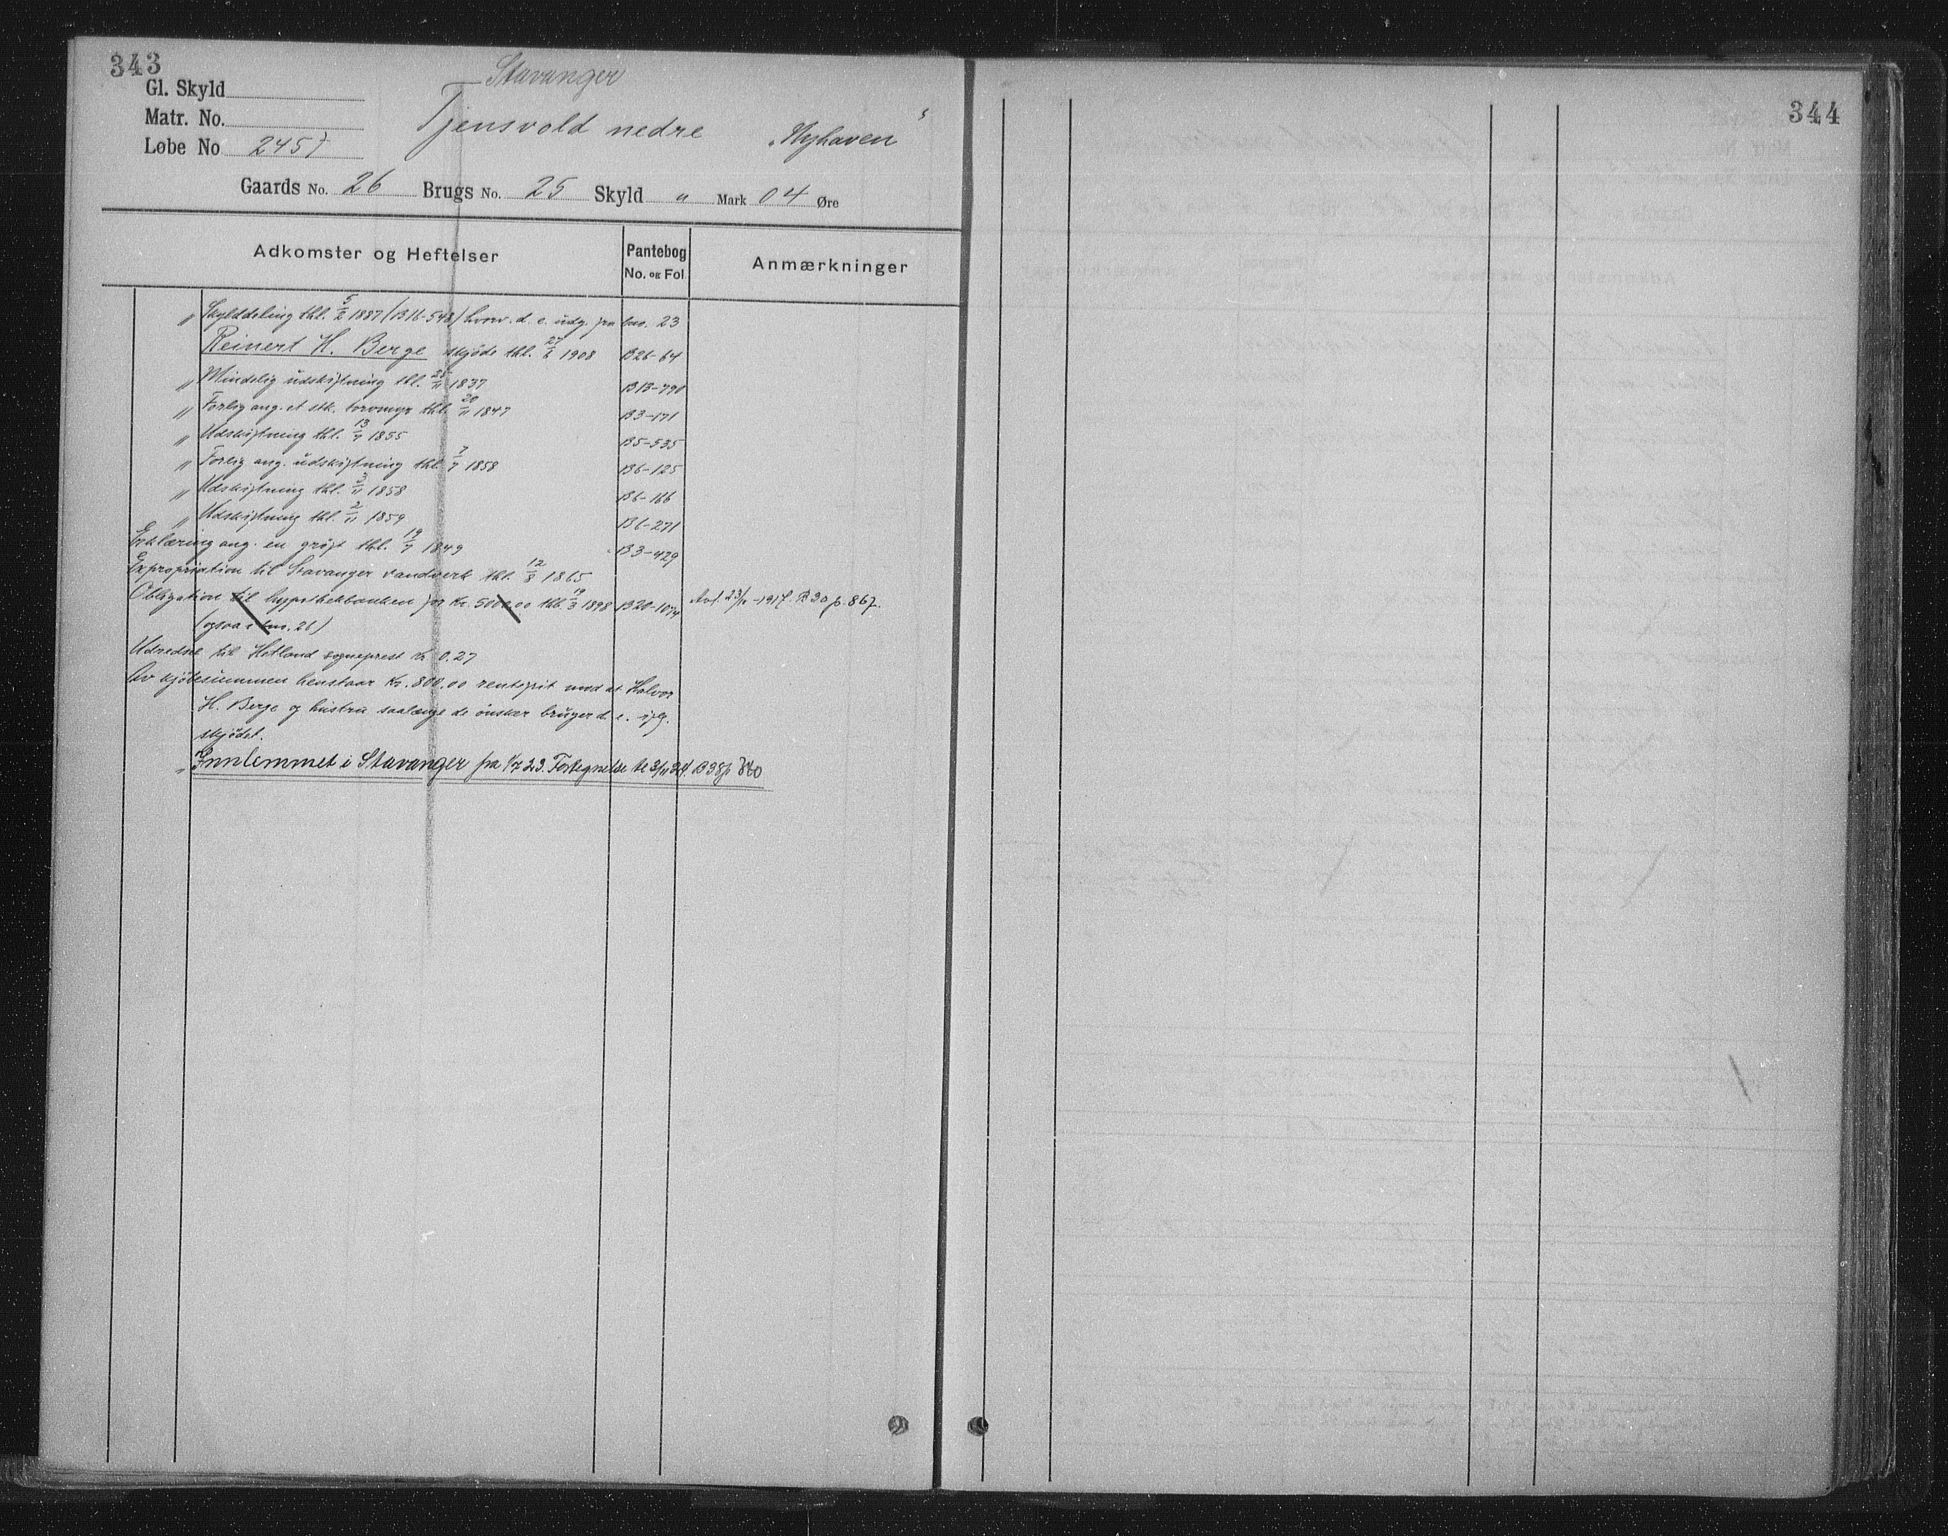 343
Stavanger
Gl. Skyld
Matr. No.
Tjensvold nedre „Nyhaven“
Løbe No 245
Gaards No. 26 Brugs No. 25 Skyld „ Mark 04 Øre
Adkomster og Heftelser Pantebog No. og Fol Anmærkninger
„ Skylddeling thl. 5/2 1887 (B16-548) hvorv. d. e. udg. fra bno. 23
Reinert H. Berge skjøde thl. 1908 B26-64
„ Mindelig udskiftning thl. 25/11 1837 B13-790
„ Forlig ang. et stk. torvmyr thl. 20/11 1847 B3-171
„ Udskiftning thl. 13/7 1855 B5-535
„ Forlig ang. udskiftning thl. 7/7 1858 B6-125
„ Udskiftning thl. 3/11 1858 B6-166
„ Udskiftning thl. 2/11 1859 B6-271
Erklæring ang. en grøft thl. 19/7 1849 B3-429
Expropriation til Stavanger vandverk thl. 12/8 1865
Obligation til hypothekbanken for Kr. 5000.00 thl. 19/3 1898 B20-1074 Avl. 1917. B 30 p. 867.
(ogsaa i bno. 26)
Udredsel til Hetland sogneprest Kr 0.27
Av kjøbesummen henstaar Kr. 800.00 rentefrit mod at Halvor
H. Berge og hustru saalænge de ønsker bruger d. e. iflg.
skjødet.
„ Innlemmet i Stavanger fra 1/7 23. Fortegnelse tl 3/11 24 B38 p
344